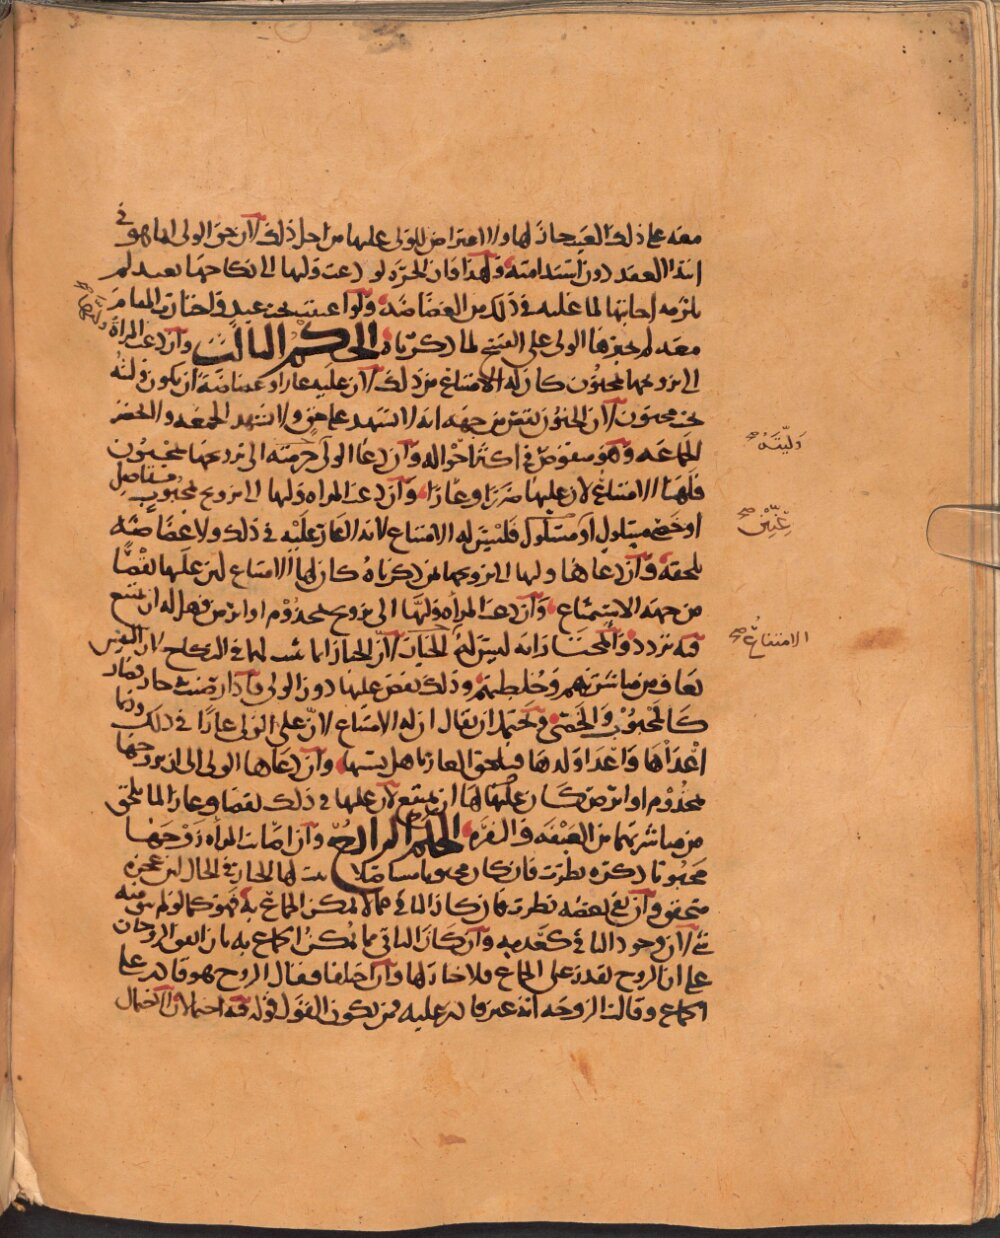 معه على ذلك العيب جاز لها ولا اعتراض للولي عليها من اجل ذلك لان حق الولي انما هو في
ابتدا العقد دون استدامته ولهذا فان الحرة لو دعت وليها الى نكاحها بعبد لم
يلزمه اجابتها لما عليه في ذلك من الغضاضة ولو اعتقت تحت عبد فاختارت المقام
معه لم يجبرها الولي على الفسخ لما ذكرناه الحكم الثالث وان دعت المراة وليها
الى تزويجها بمجنون كان له الامتناع من ذلك لان عليه عارا وغضاضة ان يكون وليته
تحت مجنون لان الجنون نقص من جهة انه لا يشهد على حق ولا يشهد الجمعة ولا يحضر
الجماعة وهو منقوص في اكثر احواله وان دعا الولي حرمته الى تزويجها بمجنون
فلها الامتناع لان عليها ضررا وعارا وان دعت المراه وليها الى تزويج بمجبوب
او خصي مسلول او مسلول فليس له الامتناع لانه لا عار عليه في ذلك ولا غضاضة
تلحقه وان دعاها وليها الى تزويجها من ذكرناه كان لها الامتناع لان عليها نقصا
من جهة الاستمتاع وان دعت المراه وليها الى تزويج بمجذوم او ابرص فهل له ان يمتنع
فيه تردد والمختار انه ليس له الخيار لان الخيار انما يثبت لها في النكاح لان النفس
تعاف من مباشرتهم ومخلطتهم وذلك نقص عليها دون الولي فاذا رضيت جاز وصار
كالمجبوب والخصي ويحتمل ان يقال ان له الامتناع لان على الولي عارا في ذلك وربما
اعداها واعدا ولدها فيلحق العار باهل بيتها وان دعاها الولي الى ان يزوجها
بمجذوم او ابرص كان لها ان تمتنع لان عليها في ذلك نقصا وعارا لما يلحق
من مباشرتهما من العيفه والنفره الحكم الرابع وان اصابت المراه زوجها
مجبوبا ذكره نظرت فان كان مجبوبا مستاصلا ثبت لها الخيار في الحال لان عجزه
متحقق وان بقي بعضه نظرت فان كان الباقي مما لا يمكن الجماع به فهو كما لو لم يبق منه
شي لان وجود الباقي كعدمه وان كان الباقي مما يمكن الجماع به فان اتفق الزوجان
على ان الزوج يقدر على الجماع فلا خيار لها وان اختلفا فقال الزوج هو قادر على
الجماع وقالت الزوجه انه غير قادر عليه فمن يكون القول قوله فيه احتمالان الاحتمال
وليته
عنين
الامتناع